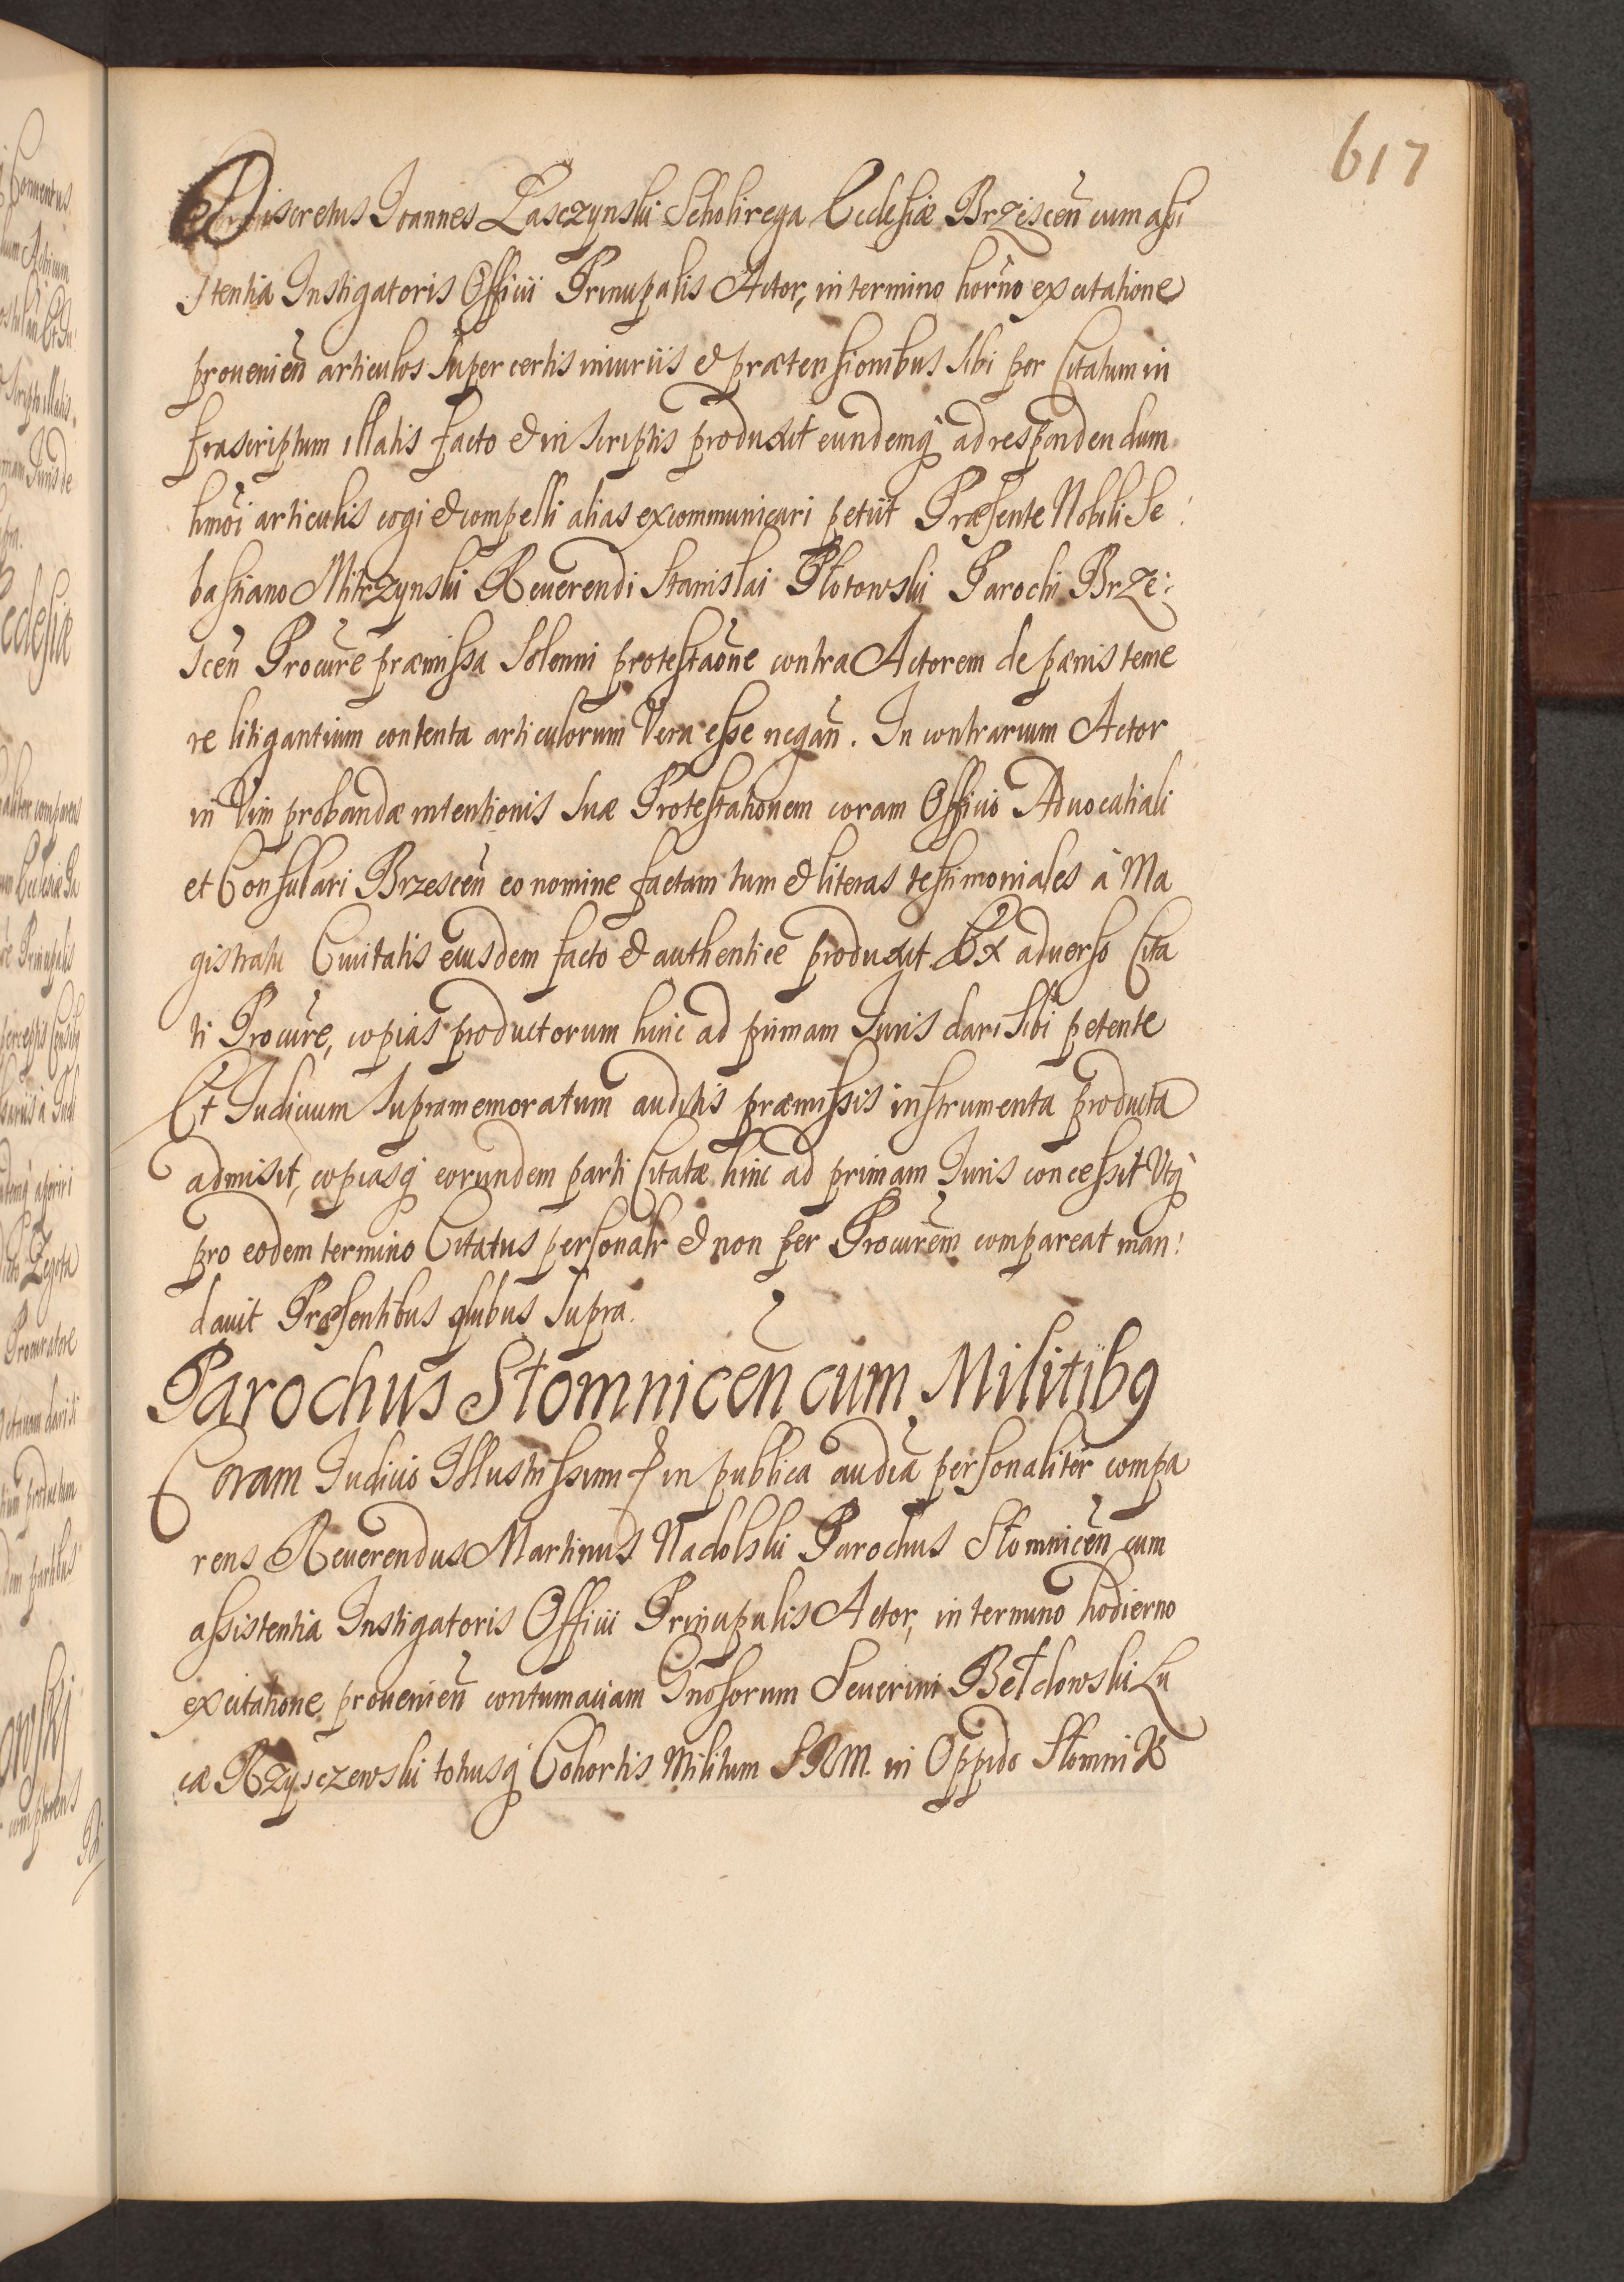 617
Discretus Joannes Łasczynski Scholirega Ecclesiæ Brzescen̄ cum assi
stentia Instigatoris Officii Principalis Actor, in termino hor̄no ex citatione
prouenien̄ articulos super certis iniuriis & prætensionibus sibi per Citatum in
frascriptum illatis facto & in scriptis produxit eundemq̧ ad respondendum
hmōi articulis cogi & compelli alias excommunicari petiit Præsente Nobili Se
bastiano Mitrzynski Reuerendi Stanislai Płotowski Parochi Brze:
scen̄ Procur̄e præmissa solenni protestaōne contra Actorem de pænis teme
re litigantium contenta articulorum Vera esse negan̄. In contrarium Actor
in Vim probandæ intentionis suæ Protestationem coram Officio Aduocatiali
et Consulari Brzescen̄ eo nomine factam tum & literas testimoniales à Ma
gistratu Ciuitatis eiusdem facto & authentice produxit Ex aduerso Cita
ti Procur̄e, copias productorum hinc ad primam Juris dari sibi petente
Et Judicium supramemoratum auditis præmissis instrumenta producta
admisit, copiasq̧ eorundem parti Citatæ hinc ad primam Juris concessit Utq̧
pro eodem termino Citatus personalr & non per Procur̄em compareat man:
dauit Præsentibus quibus supra.
Parochus Słomnicen̄ cum Militibq
Coram Judicio Illustrissimi & in publica audiā personaliter compa
rens Reuerendus Martinus Nadolski Parochus Słomnicen̄ cum
assistentia Instigatoris Officii Principalis Actor, in termino hodierno
ex citatione prouenien̄ contumaciam Gnosorum Seuerini Bełdowski Lu
cæ Rzysczewski totiusq̧ Cohortis Militum SRM. in Oppido Słomni